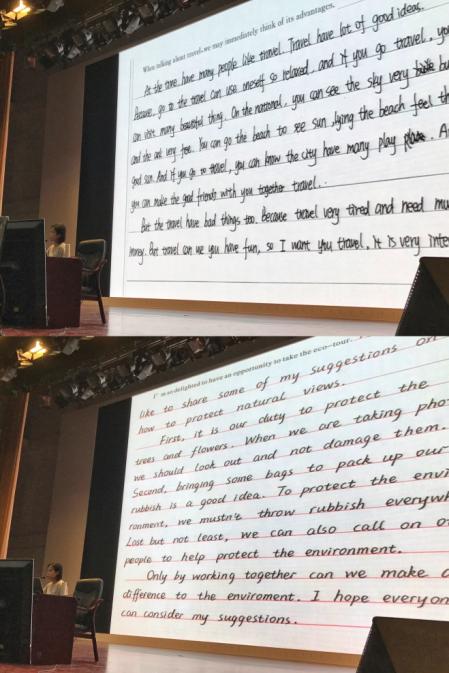 When talking about travel, we may immediately think of its advantages.
At the time have many people like travel. Travel have lot of good ideas.
Because, go to the travel can use oneself so relaxed, and if you go travel, you
can visit many beautiful thing. On the national, you can see the sky very
and the out very free. You can go the beach to see sun, lying the beach feel
good sun. And if you go to travel, you can know the city have many play
you can make the good friends with you together travel..
But the travel have bad things too. Because travel very tired and need
money. But travel can we you have fun, so I want you travel, it is very
I' m so delighted to have an opportunity to take the eco-tour.
like to share some of my suggestions on
how to protect natural views.
First, it is our duty to protect the
trees and flowers. When we are taking
we should look out and not damage them.
Second, bringing some bags to pack up our
rubbish is a good idea. To protect the envi
ronment, we mustn't throw rubbish
Last but not least, we can also call on
people to help protect the environment.
Only by working together can we make a
difference to the enviroment. I hope
can consider my suggestions.